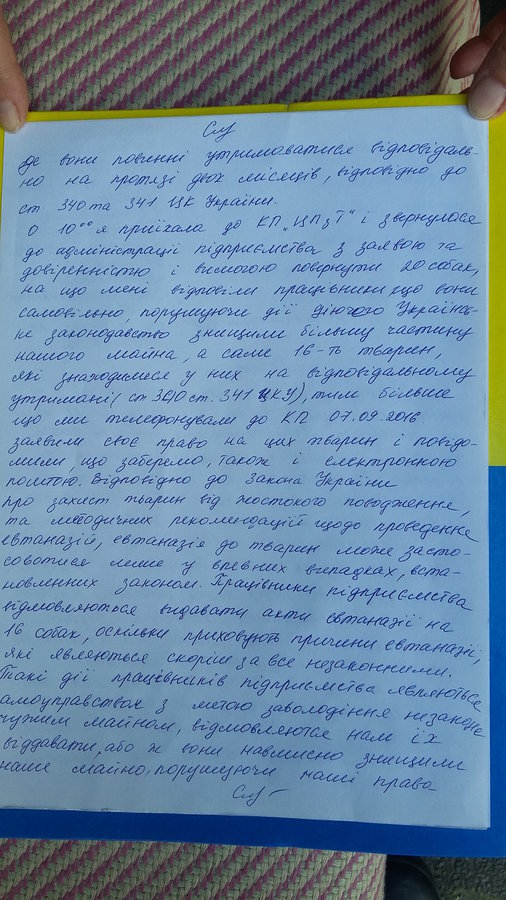 де вони повинні утримоватися відповідаль-
но на протязі двох місяців, відповідно до
ст 340 та 341 ЦК України.
О 10⁰⁰ я приїхала до КП „ЦПзТ" і звернулася
до адміністрації підприємства з заявою та
довіренністю і вимогою повернути 20 собак,
на що мені відповіли працівники, що вони
самовільно, порушуючи дії діючого Українсь-
ке законодавство знищили більшу частину
нашого майна, а саме 16-ть тварин,
які знаходилися у них на відповідальному
утримані (ст 340 ст. 341 ЦКУ), тим більше
що ми телефонували до КП 07.09.2016
заявили своє право на цих тварин і повідо-
мили, що заберемо, також і електронною
поштою. Відповідно до Закона України
про захист тварин від жостокого поводження,
та методичних рекомендацій щодо проведення
евтаназій, евтаназія до тварин може засто-
соватися лише у впевних випадках, вста-
новленних законом. Працівники підприємства
відмовляються видавати акти евтаназії на
16 собак, оскільки приховують причени евтаназії,
які являються скоріш за все незаконними.
Такі дії працівників підприємства являються
амоуправством з метою заволодіння незаконно
чужим майном, відмовляются нам їх
віддавати, або ж вони навмисно знищили
наше майно, порушуючи наші права